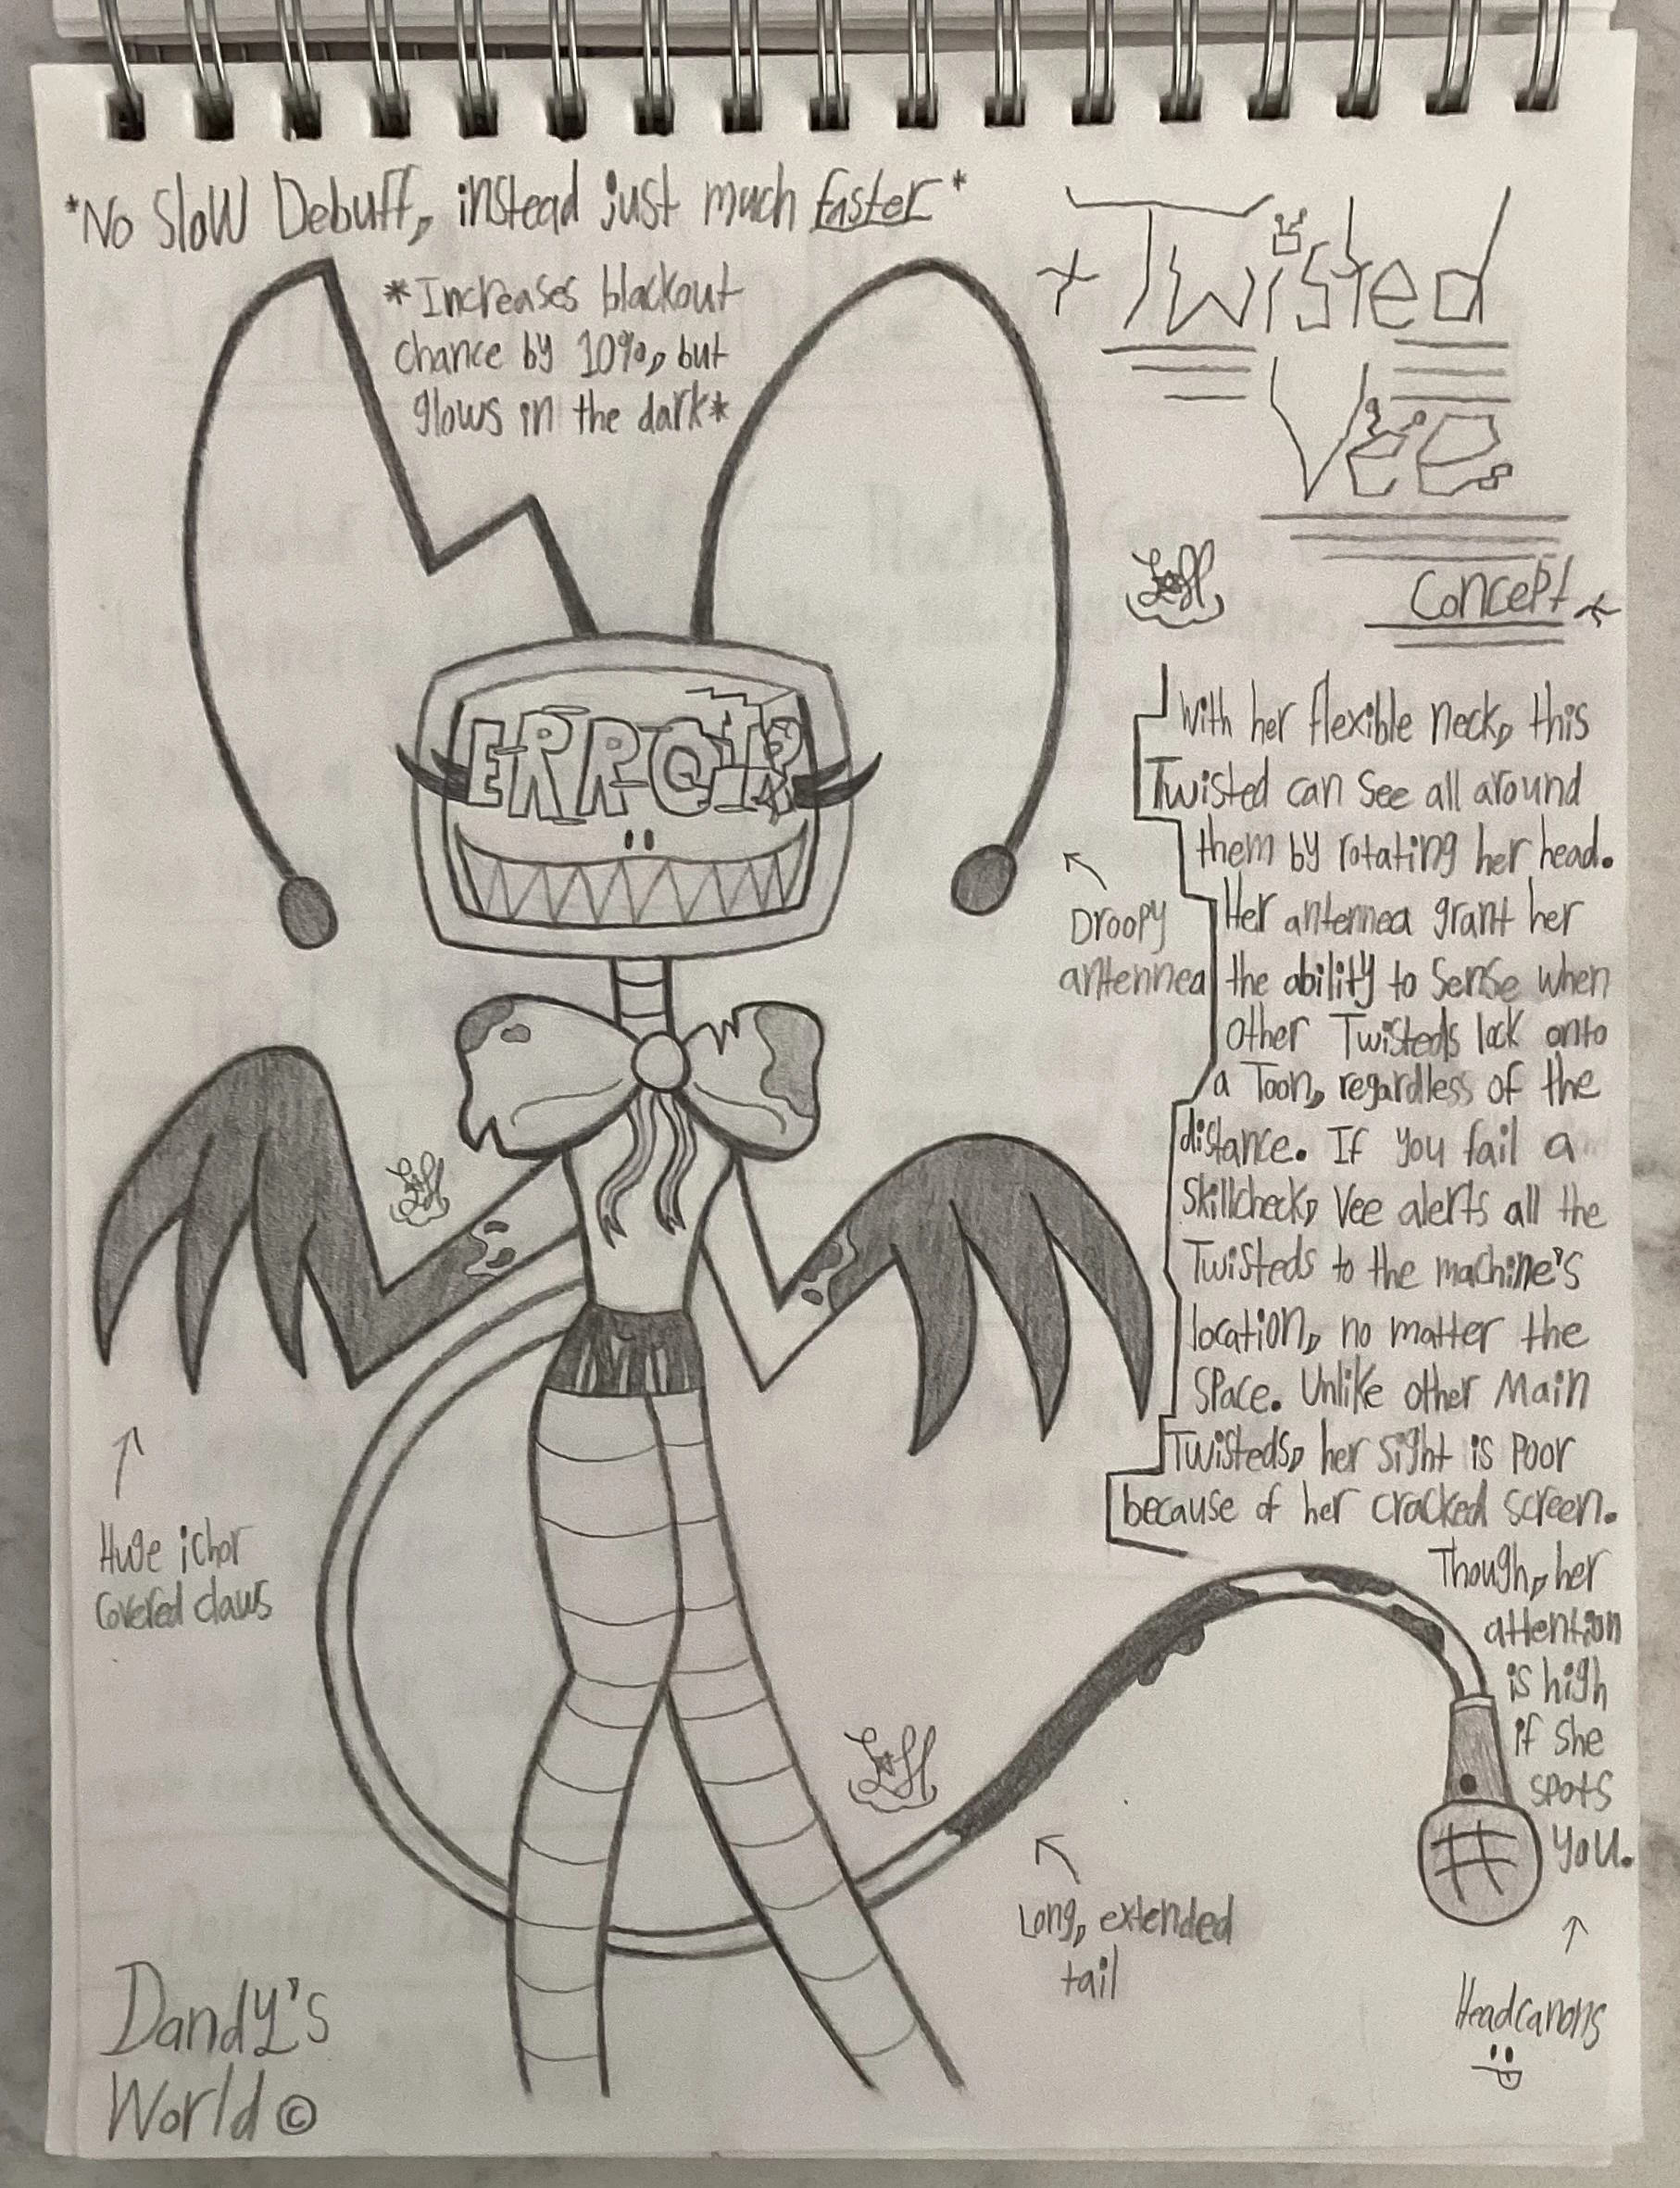 *No Slow Debuff, instead just much faster*
*Increases blackout
chance by 10%, but
glows in the dark*
+ Twisted
Vee
Concept
ERROR
With her flexible neck, this
Twisted can see all around
them by rotating her head.
Her antennea grant her
the ability to sense when
other Twisteds lock onto
a Toon, regardless of the
distance. If you fail a
skillcheck, Vee alerts all the
Twisteds to the machine's
location, no matter the
space. Unlike other Main
Twisteds, her sight is poor
because of her cracked screen.
Though, her
attention
is high
if she
spots
you.
Droopy
antennea
Huge ichor
covered claws
Long, extended
tail
Headcanons
Dandy's
World ©